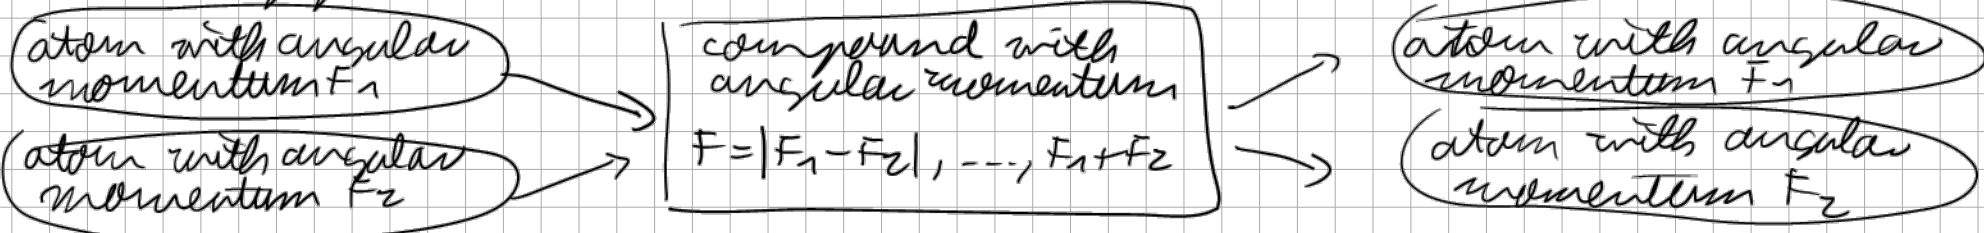 atom with angular
momentum F₁
atom with angular
momentum F₂
compound with
angular momentum
F = |F₁ - F₂| , ---, F₁ + F₂
atom with angular
momentum F₁
atom with angular
momentum F₂